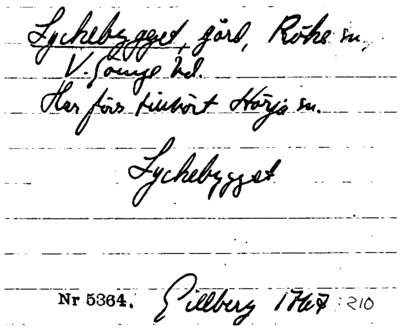 Lyckebygget, gård, Röke sn,
V. Göinge hd.
Har förr tillhört Hörja sn.
Lyckebygget
Nr 5364. Gillberg 1767 : 210